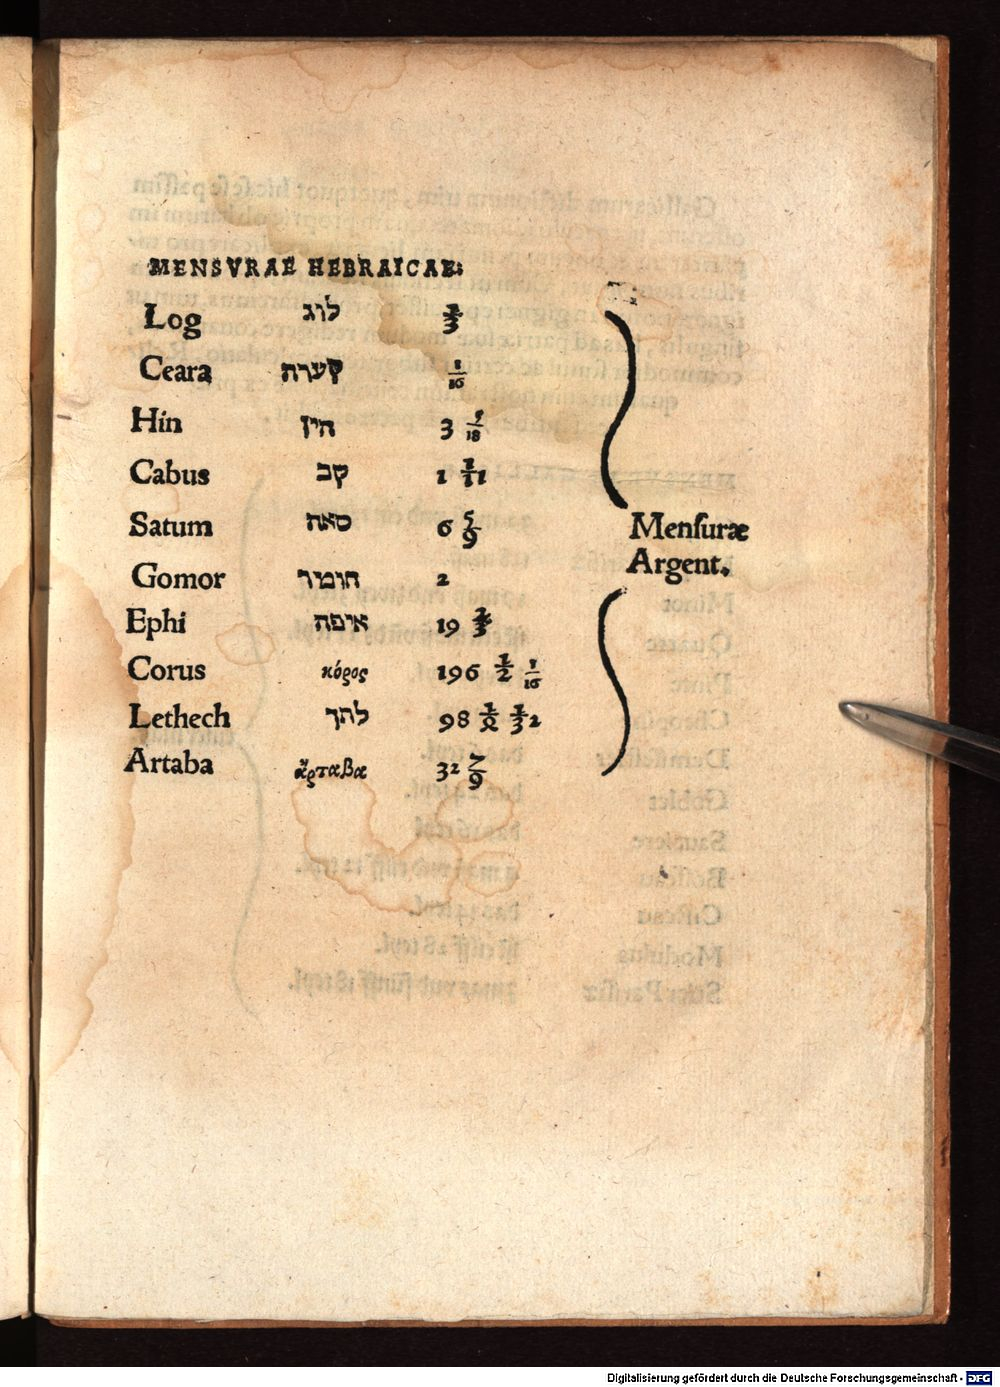 MENSVRAE HEBRAICAE:
Log לוג
Ceara קערה 1/16
Hin הין 3 5/18
Cabus קב 1 1/11
Satum סאה 6 5/9
Gomor חומר 2
Ephi איפה 19
Corus κόρος 196 1/2 1/16
Lethech לתך 98 1/2 1/32
Artaba ἄρταβα 32 7/9
Mensuræ
Argent.
Digitalisierung gefördert durch die Deutsche Forschungsgemeinschaft - DFG